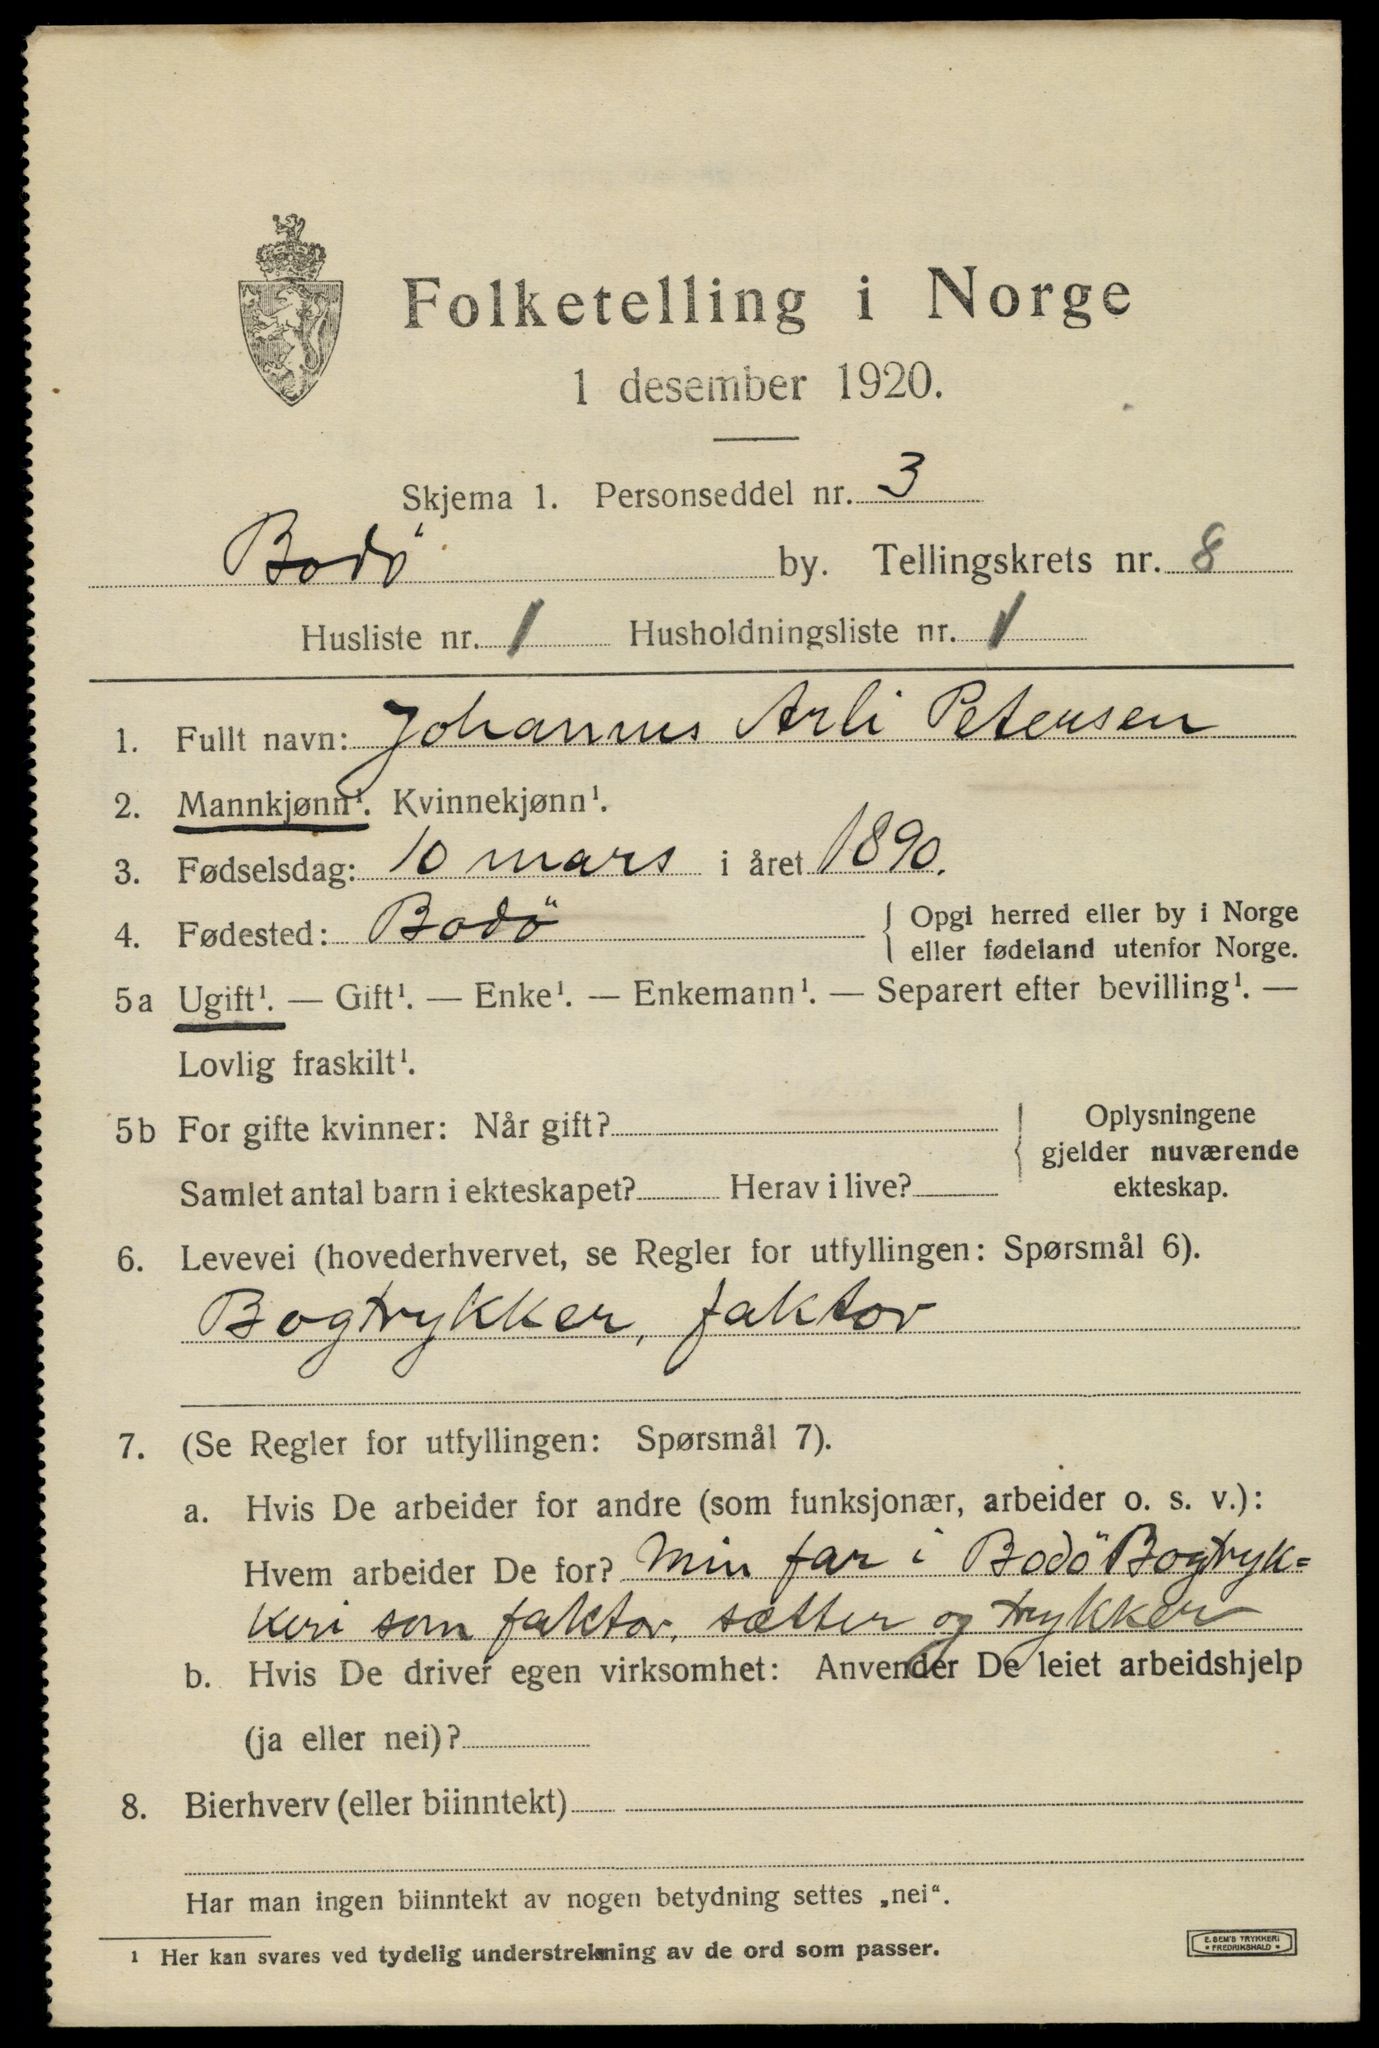 Folketelling i Norge
1 desember 1920.
Skjema 1. Personseddel nr. 3
Bodö by. Tellingskrets nr. 8
Husliste nr. 1 Husholdningsliste nr. 1
1. Fullt navn: Johannes Arli Petersen
2. Mannkjønn¹. Kvinnekjønn¹.
3. Fødselsdag: 10 mars i året 1890.
4. Fødested: Bodö { Opgi herred eller by i Norge
eller fødeland utenfor Norge.
5a Ugift¹. — Gift¹. — Enke¹. — Enkemann¹. — Separert efter bevilling¹. —
Lovlig fraskilt¹.
5b For gifte kvinner: Når gift? { Oplysningene
gjelder nuværende
Samlet antal barn i ekteskapet? Herav i live? ekteskap.
6. Levevei (hovederhvervet, se Regler for utfyllingen: Spørsmål 6).
Bogtrykker, faktor
7. (Se Regler for utfyllingen: Spørsmål 7).
a. Hvis De arbeider for andre (som funksjonær, arbeider o. s. v.):
Hvem arbeider De for? Min far i Bodö Bogtryk=
keri som faktor, sætter og trykker
b. Hvis De driver egen virksomhet: Anvender De leiet arbeidshjelp
(ja eller nei)?
8. Bierhverv (eller biinntekt)
Har man ingen biinntekt av nogen betydning settes „nei“.
¹ Her kan svares ved tydelig understrekning av de ord som passer.
E. SEM'S TRYKKERI
• FREDRIKSHALD •